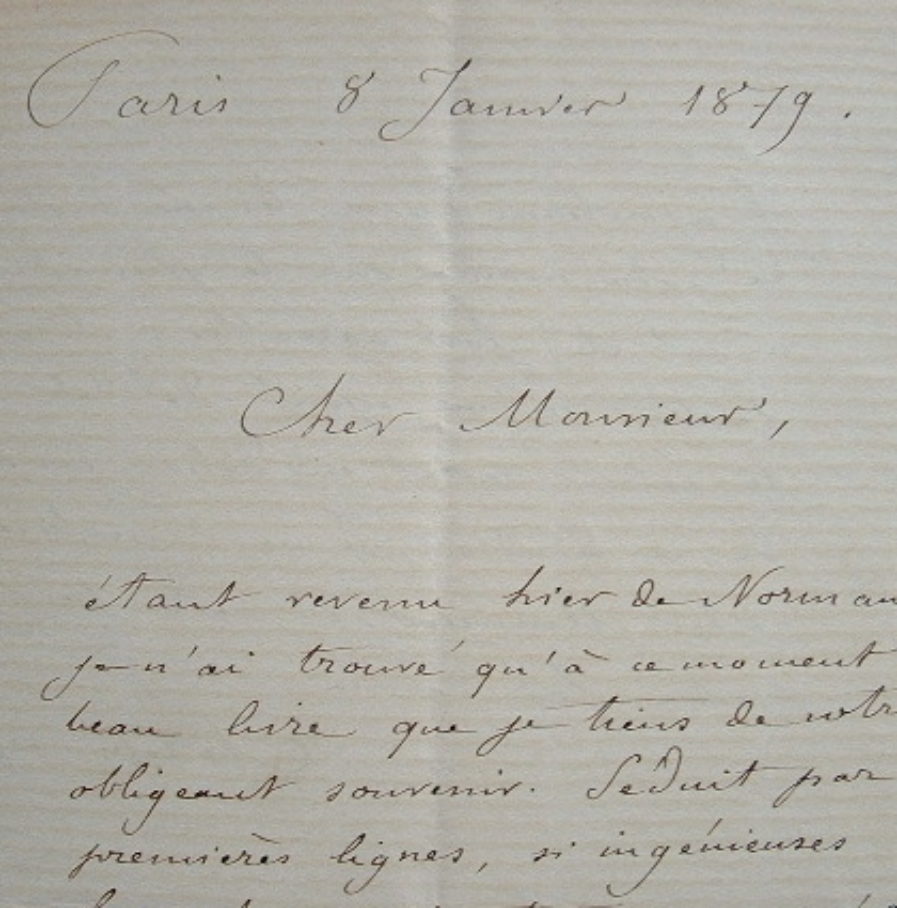 Paris 8 Janvier 1879.
Cher Monsieur,
étant revenu hier de Norman
je n'ai trouvé qu'à ce moment
beau livre que je tiens de votr
obligeant souvenir. Séduit par
premières lignes, si ingénieuses